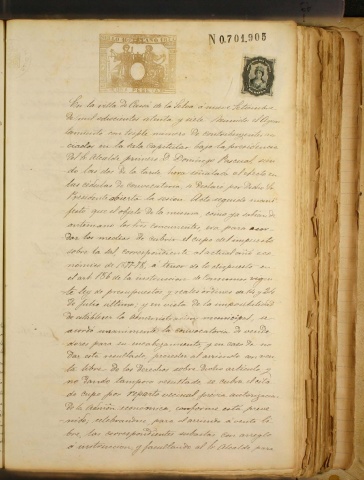 N 0.701.905
En la villa de Cassá de la Selva á nueve Setiembre
de mil ochocientos setenta y siete. Reunido el Ayun
tamiento con triple número de contribuyentes con
vocados en la sala Capitular bajo la presidencia
del Sr Alcalde primero D. Domingo Pascual sien
do las dos de la tarde hora señalada al efecto en
las cédulas de convocatoria, se declaró por dicho Sr
Presidente abierta la sesion. Acto seguido mani
festó que el objeto de la misma, como ya sabian de
antemano los Sres concurrentes, era para acor
dar los medios de cubrir el cupo del impuesto
sobre la sal correspondiente al actual año eco
nómico de 1877-78, á tenor de lo dispuesto en
el art 156 de la instruccion de consumos vigen
te, ley de presupuestos, y reales órdenes de 24 y 26
de Julio último; y en vista de la imposibilidad
de establecer la administracion municipal, se
acordó unanimemente la convocatoria de vende
dores para su encabezamiento, y en caso de no
dar este resultado, proceder al arriendo en ven
ta libre de los derechos sobre dicho artículo y
no dando tampoco resultado se cubra dicho
cupo por reparto vecinal previa autorizacion
de la Admon económica, conforme está preve
nido, celebrandose para el arriendo á venta li
bre, las correspondientes subastas con arreglo
á instruccion, y facultando al Sr Alcalde para